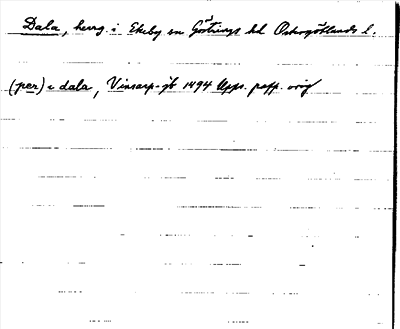 Dala, herrg. i Ekeby sn Göstrings hd Östergötlands l.
(per) i dala, Vinsarp-jb 1494 Upps. papp. orig